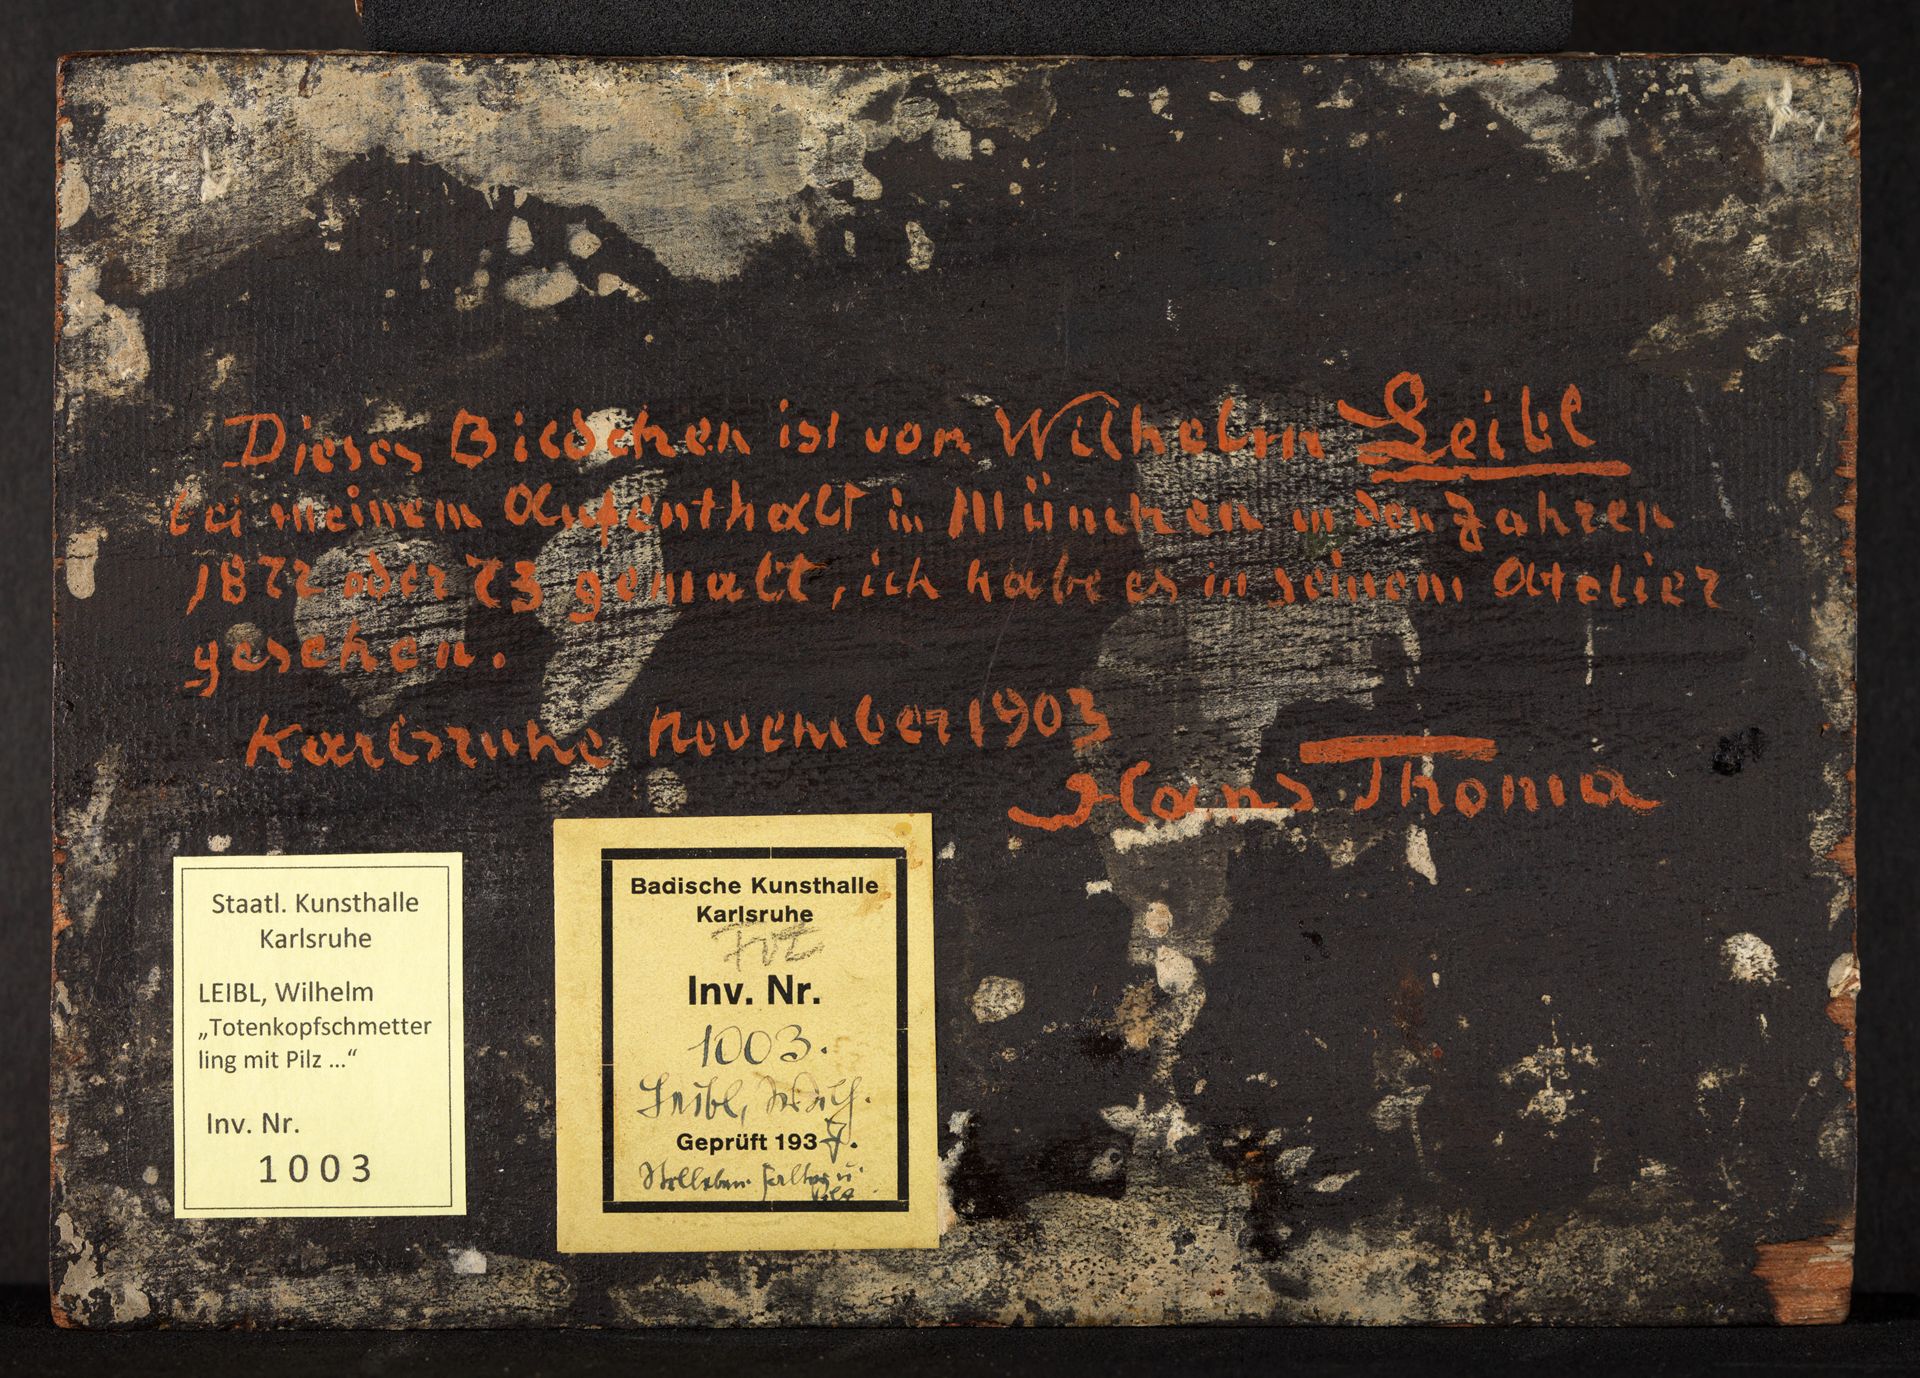 Dieses Bildchen ist von Wilhelm Leibl
bei meinem Aufenthalt in München in den Jahren
1872 oder 73 gemalt, ich habe es in seinem Atelier
gesehen.
Karlsruhe November 1903
Hans Thoma
Staatl. Kunsthalle
Karlsruhe
LEIBL, Wilhelm
„Totenkopfschmetter
ling mit Pilz ...“
Inv. Nr.
1003
Badische Kunsthalle
Karlsruhe
Inv. Nr.
1003.
Leibl, Wilh.
Geprüft 1937.
Stilleben. Falter u.
Pilz